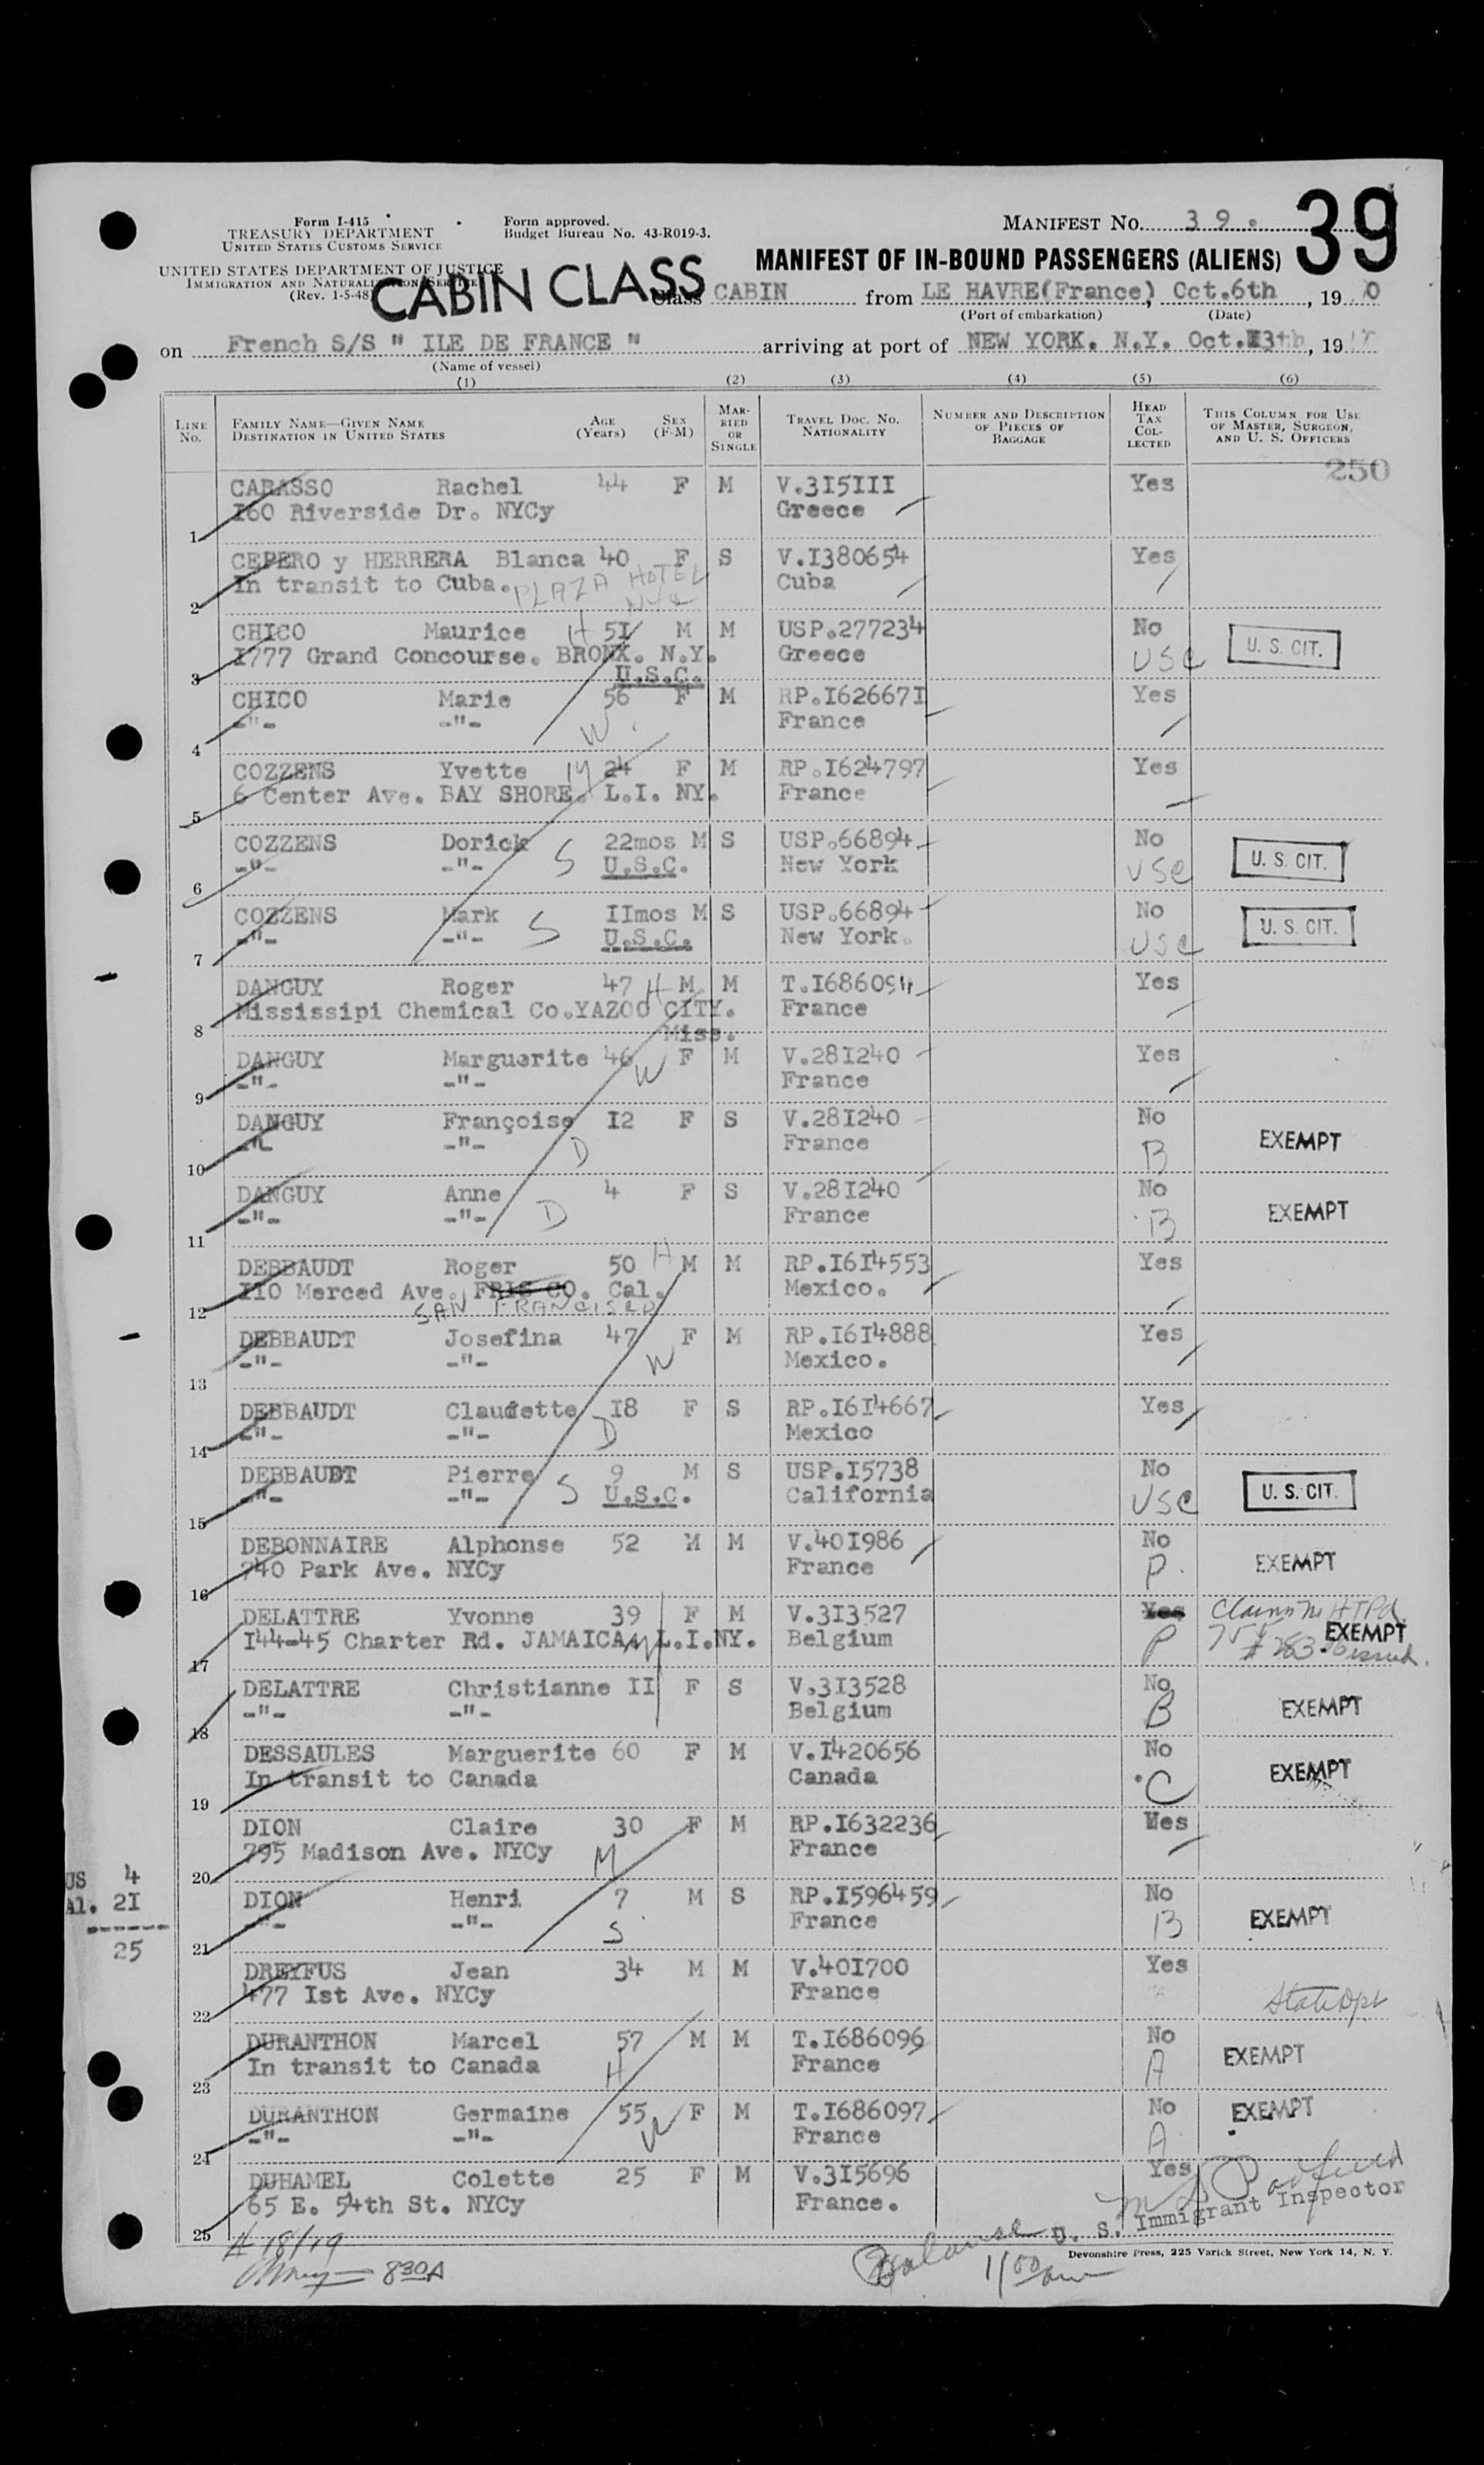 Form I-415
TREASURY DEPARTMENT
UNITED STATES CUSTOMS SERVICE
Form approved.
Budget Bureau No. 43-R019-3.
MANIFEST No. 39.
39
UNITED STATES DEPARTMENT OF JUSTICE
IMMIGRATION AND NATURALIZATION SERVICE
(Rev. 1-5-48)
CABIN CLASS
MANIFEST OF IN-BOUND PASSENGERS (ALIENS)
Class CABIN from LE HAVRE(France), Oct.6th, 19 0
(Port of embarkation) (Date)
on French S/S " ILE DE FRANCE " arriving at port of NEW YORK. N.Y. Oct. 3th, 19
(Name of vessel)
(1) (2) (3) (4) (5) (6)
LINE No. FAMILY NAME—GIVEN NAME DESTINATION IN UNITED STATES AGE (Years) SEX (F-M) MARRIED OR SINGLE TRAVEL DOC. No. NATIONALITY NUMBER AND DESCRIPTION OF PIECES OF BAGGAGE HEAD TAX COLLECTED THIS COLUMN FOR USE OF MASTER, SURGEON, AND U. S. OFFICERS
250
CARASSO Rachel 44 F M V.3I5III Yes
I60 Riverside Dr. NYCy Greece
1
CEPERO y HERRERA Blanca 40 F S V.I380654 Yes
In transit to Cuba. PLAZA HOTEL NYC Cuba
2
CHICO Maurice H 5I M M USP.277234 No
I777 Grand Concourse. BRONX. N.Y. Greece USC U. S. CIT.
U.S.C.
3
CHICO Marie 56 F M RP.I62667I Yes
-"- -"- W France
4
COZZENS Yvette M 24 F M RP.I624797 Yes
6 Center Ave. BAY SHORE. L.I. NY. France
5
COZZENS Dorick S 22mos M S USP.66894 No
-"- -"- U.S.C. New York USC U. S. CIT.
6
COZZENS Mark S IImos M S USP.66894 No
-"- -"- U.S.C. New York. USC U. S. CIT.
7
DANGUY Roger 47 H M M T.I686094 Yes
Mississipi Chemical Co.YAZOO CITY. France
Miss.
8
DANGUY Marguerite 46 W F M V.28I240 Yes
-"- -"- France
9
DANGUY Françoise I2 F S V.28I240 No
-"- -"- D France B EXEMPT
10
DANGUY Anne 4 F S V.28I240 No
-"- -"- D France B EXEMPT
11
DEBBAUDT Roger 50 H M M RP.I6I4553 Yes
II0 Merced Ave. FRIS CO. Cal. Mexico.
SAN FRANCISCO
12
DEBBAUDT Josefina 47 F M RP.I6I4888 Yes
-"- -"- W Mexico.
13
DEBBAUDT Claudette I8 F S RP.I6I4667 Yes
-"- -"- D Mexico
14
DEBBAUDT Pierre 9 M S USP.I5738 No
-"- -"- S U.S.C. California USC U. S. CIT.
15
DEBONNAIRE Alphonse 52 M M V.40I986 No
740 Park Ave. NYCy France P. EXEMPT
16
DELATTRE Yvonne 39 F M V.3I3527 Yes Claims
I44-45 Charter Rd. JAMAICA M L.I.NY. Belgium P EXEMPT
17
DELATTRE Christianne II F S V.3I3528 No
-"- -"- Belgium B EXEMPT
18
DESSAULES Marguerite 60 F M V.I420656 No
In transit to Canada Canada C EXEMPT
19
DION Claire 30 F M RP.I632236 Yes
795 Madison Ave. NYCy M France
20
US 4
Al. 2I
------
25
DION Henri 7 M S RP.I596459 No
-"- -"- S France B EXEMPT
21
DREYFUS Jean 34 M M V.40I700 Yes
477 Ist Ave. NYCy France State Dpt
22
DURANTHON Marcel 57 M M T.I686096 No
In transit to Canada H France A EXEMPT
23
DURANTHON Germaine 55 W F M T.I686097 No EXEMPT
-"- -"- France A
24
DUHAMEL Colette 25 F M V.3I5696 Yes
65 E. 54th St. NYCy France.
25
U. S. Immigrant Inspector
# 18/19
830A
Balance
Devonshire Press, 225 Varick Street, New York 14, N. Y.